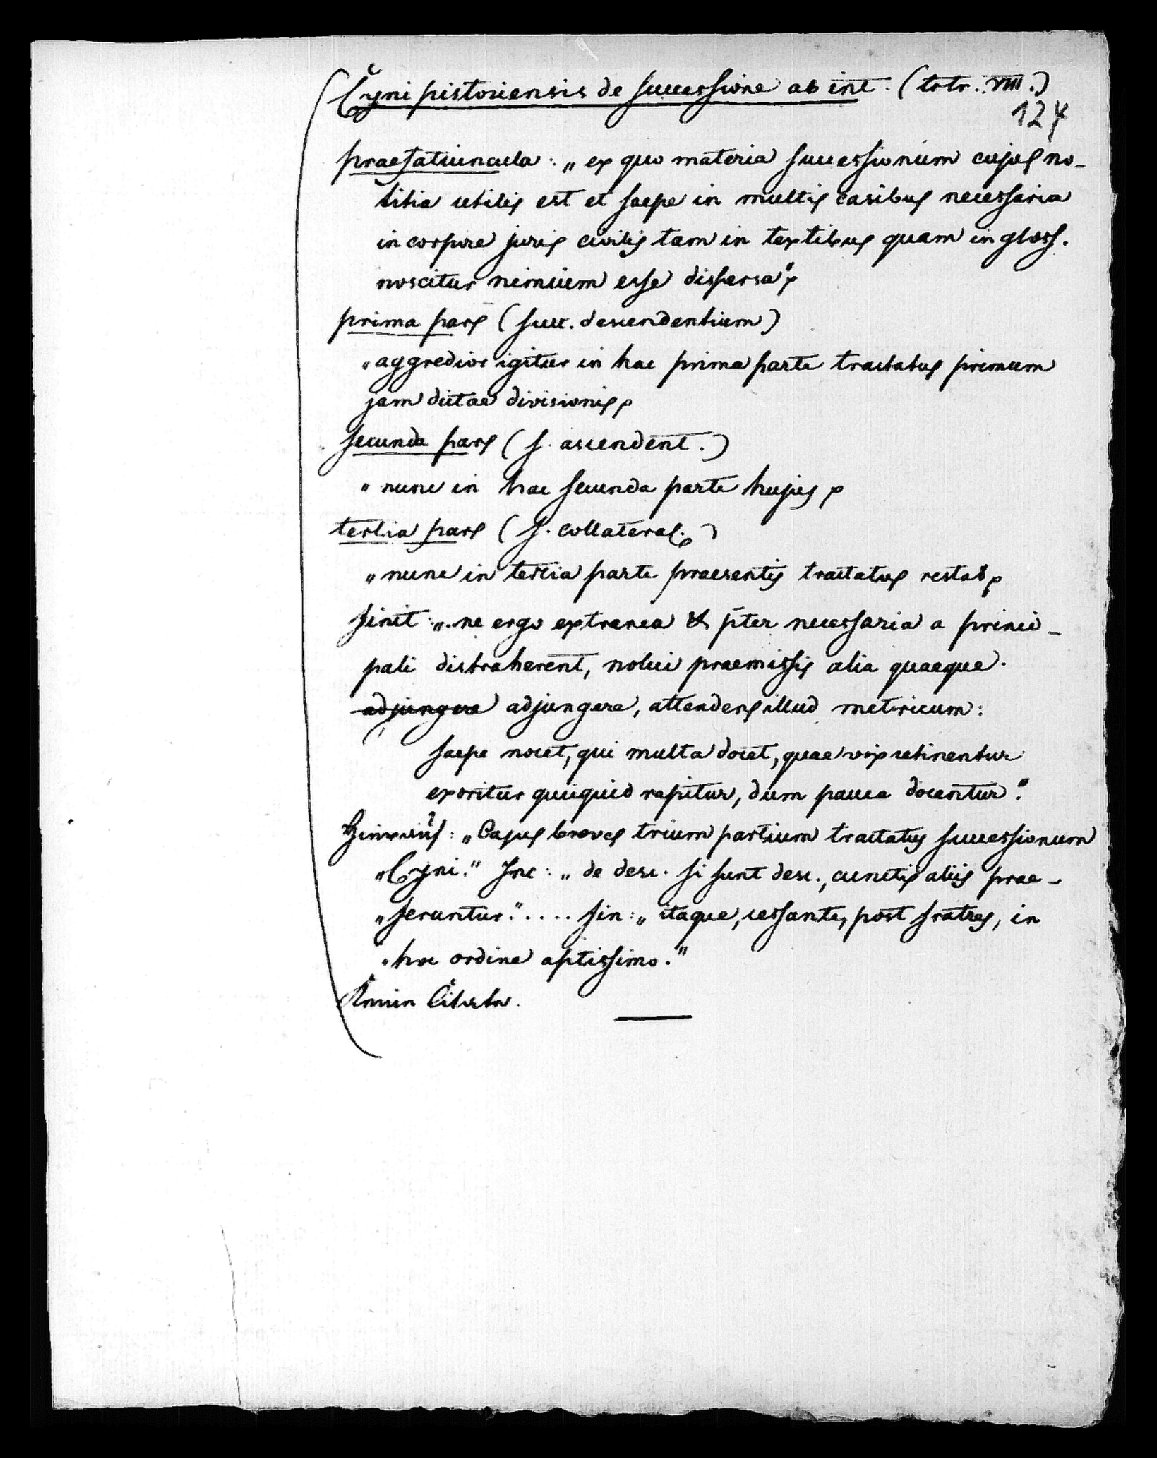 Cyni pistoriensis de successione ab int. (tctr. VIII.)
124
praefatiuncula: „ex quo materia successionum cujus no-
titia utilis est et saepe in multis casibus necessaria
in corpore juris civilis tam in textibus quam in gloss.
noscitur nimium esse dispersa"
prima pars (succ. descendentium)
„aggredior igitur in hac prima parte tractatus primum
jam dictae divisionis
secunda pars (s. ascendent.)
„nunc in hac secunda parte hujus
tertia pars (s. collateral.)
„nunc in tertia parte praesentis tractatus restat
finit: „ne ergo extranea & pter necessaria a princi-
pali distraherent, nolui praemissis alia quaeque
adjungere adjungere, attendens illud metricum:
saepe nocet, qui multa docet, quae vix retinentur
exoritur quicquid rapitur, dum pauca docentur."
„Casus breves trium partium tractatus successionum
„Cyni." Inc: „de desc. si sunt desc., cunctis aliis prae-
„feruntur." .... fin: „itaque, cessante, post fratres, in
„hoc ordine aptissimo."